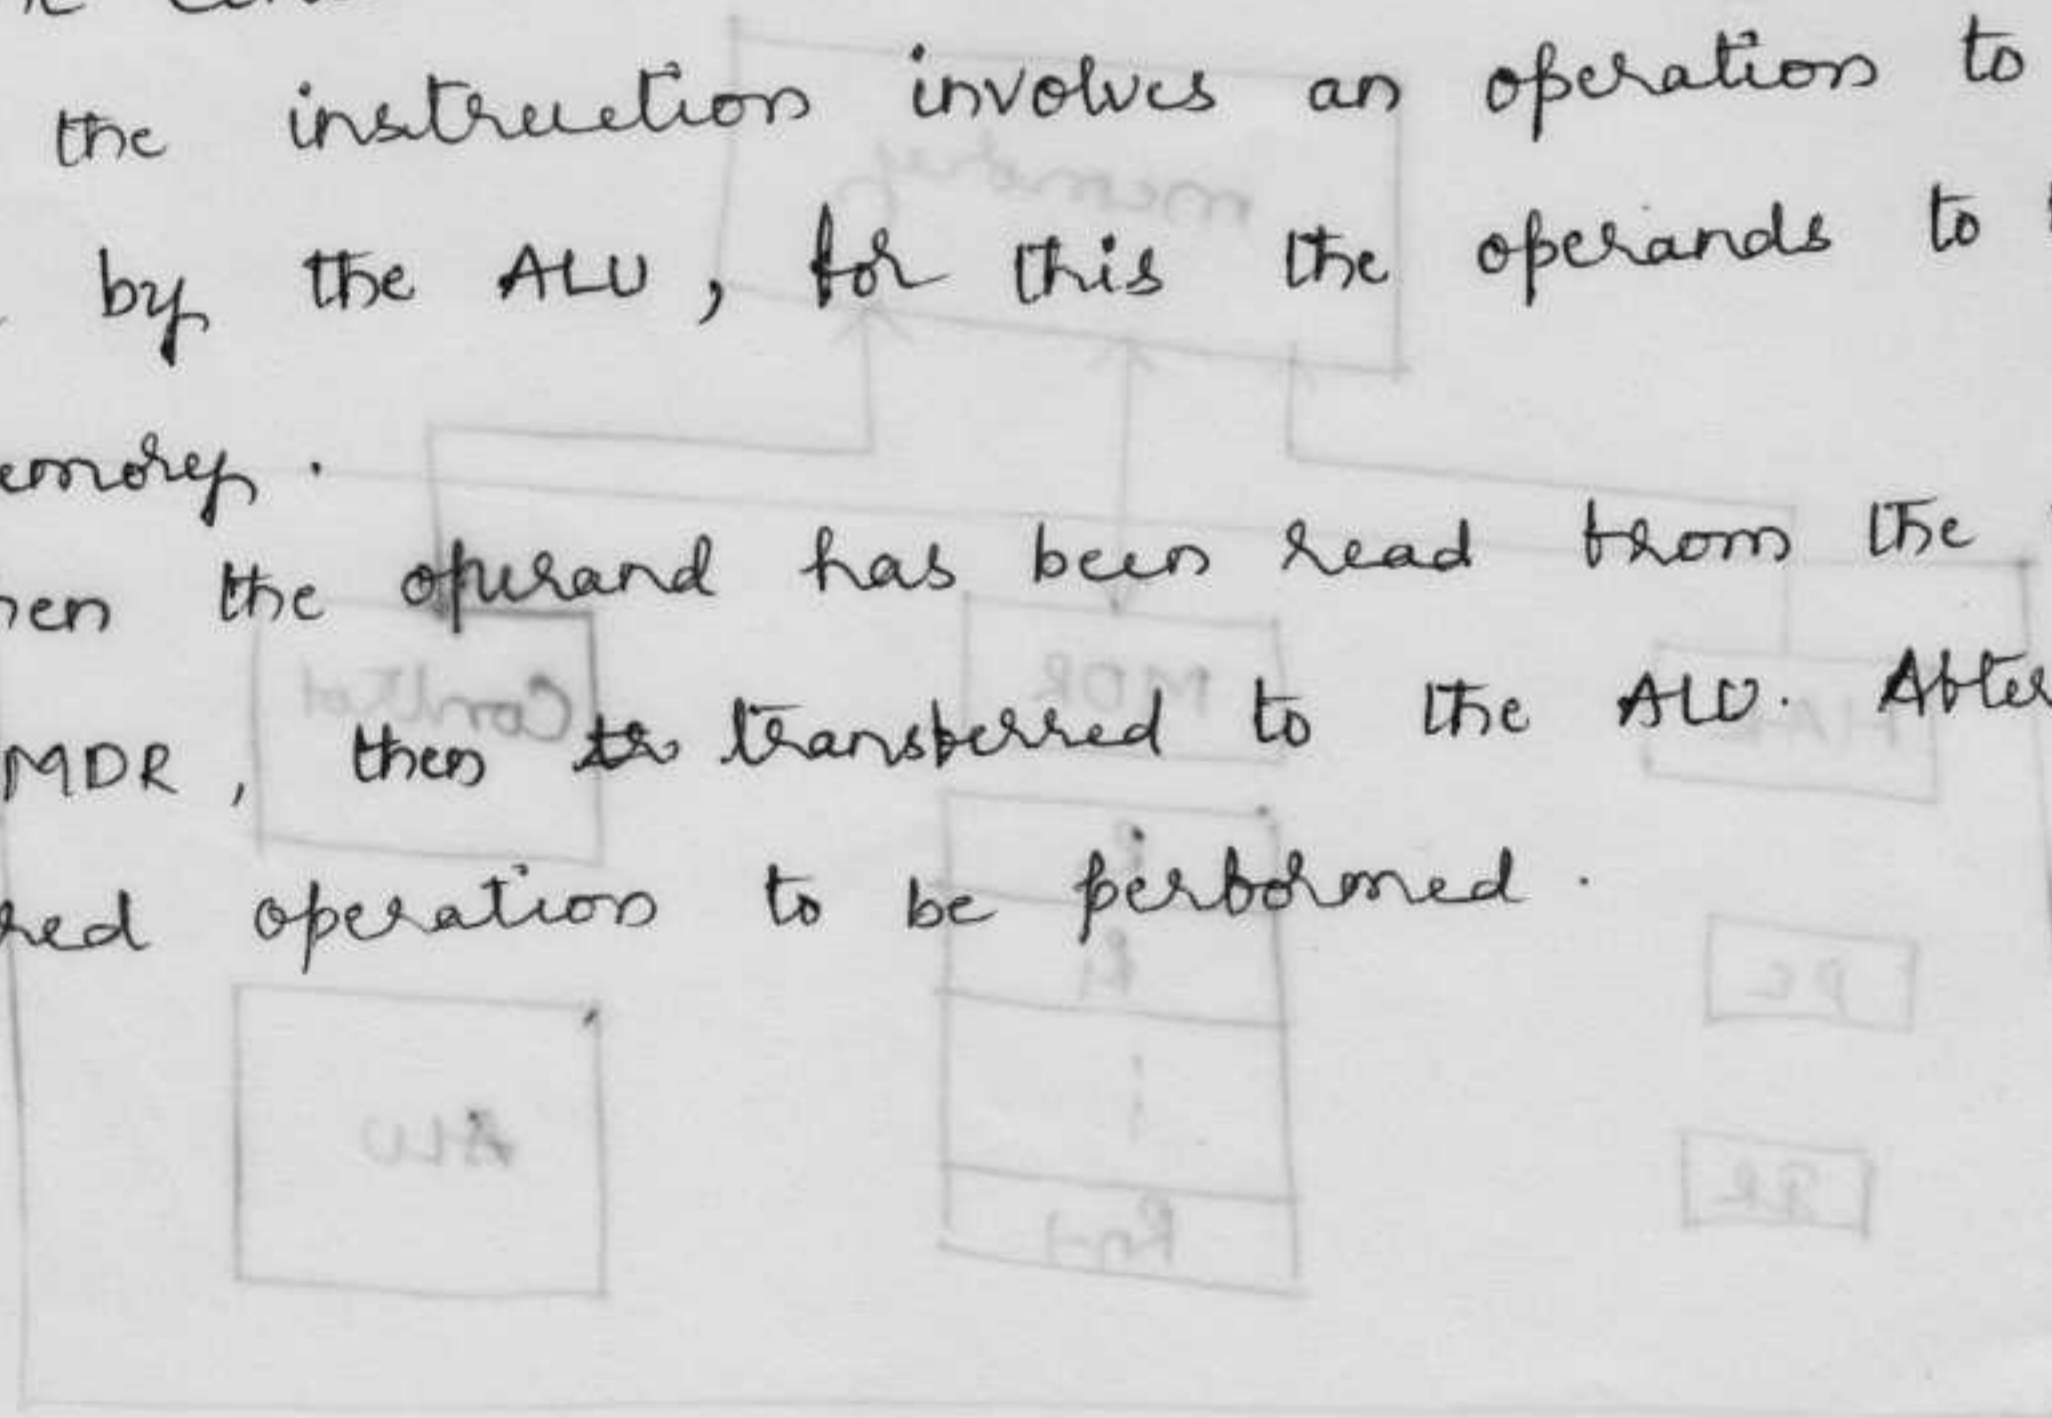 the instruction involves an operation to
by the ALU, for this the operands to
emory.
en the operand has been read from the
MDR, then transferred to the ALU. After
red operation to be performed.
memory
Control
MDR
ALU
PC
Rn-1